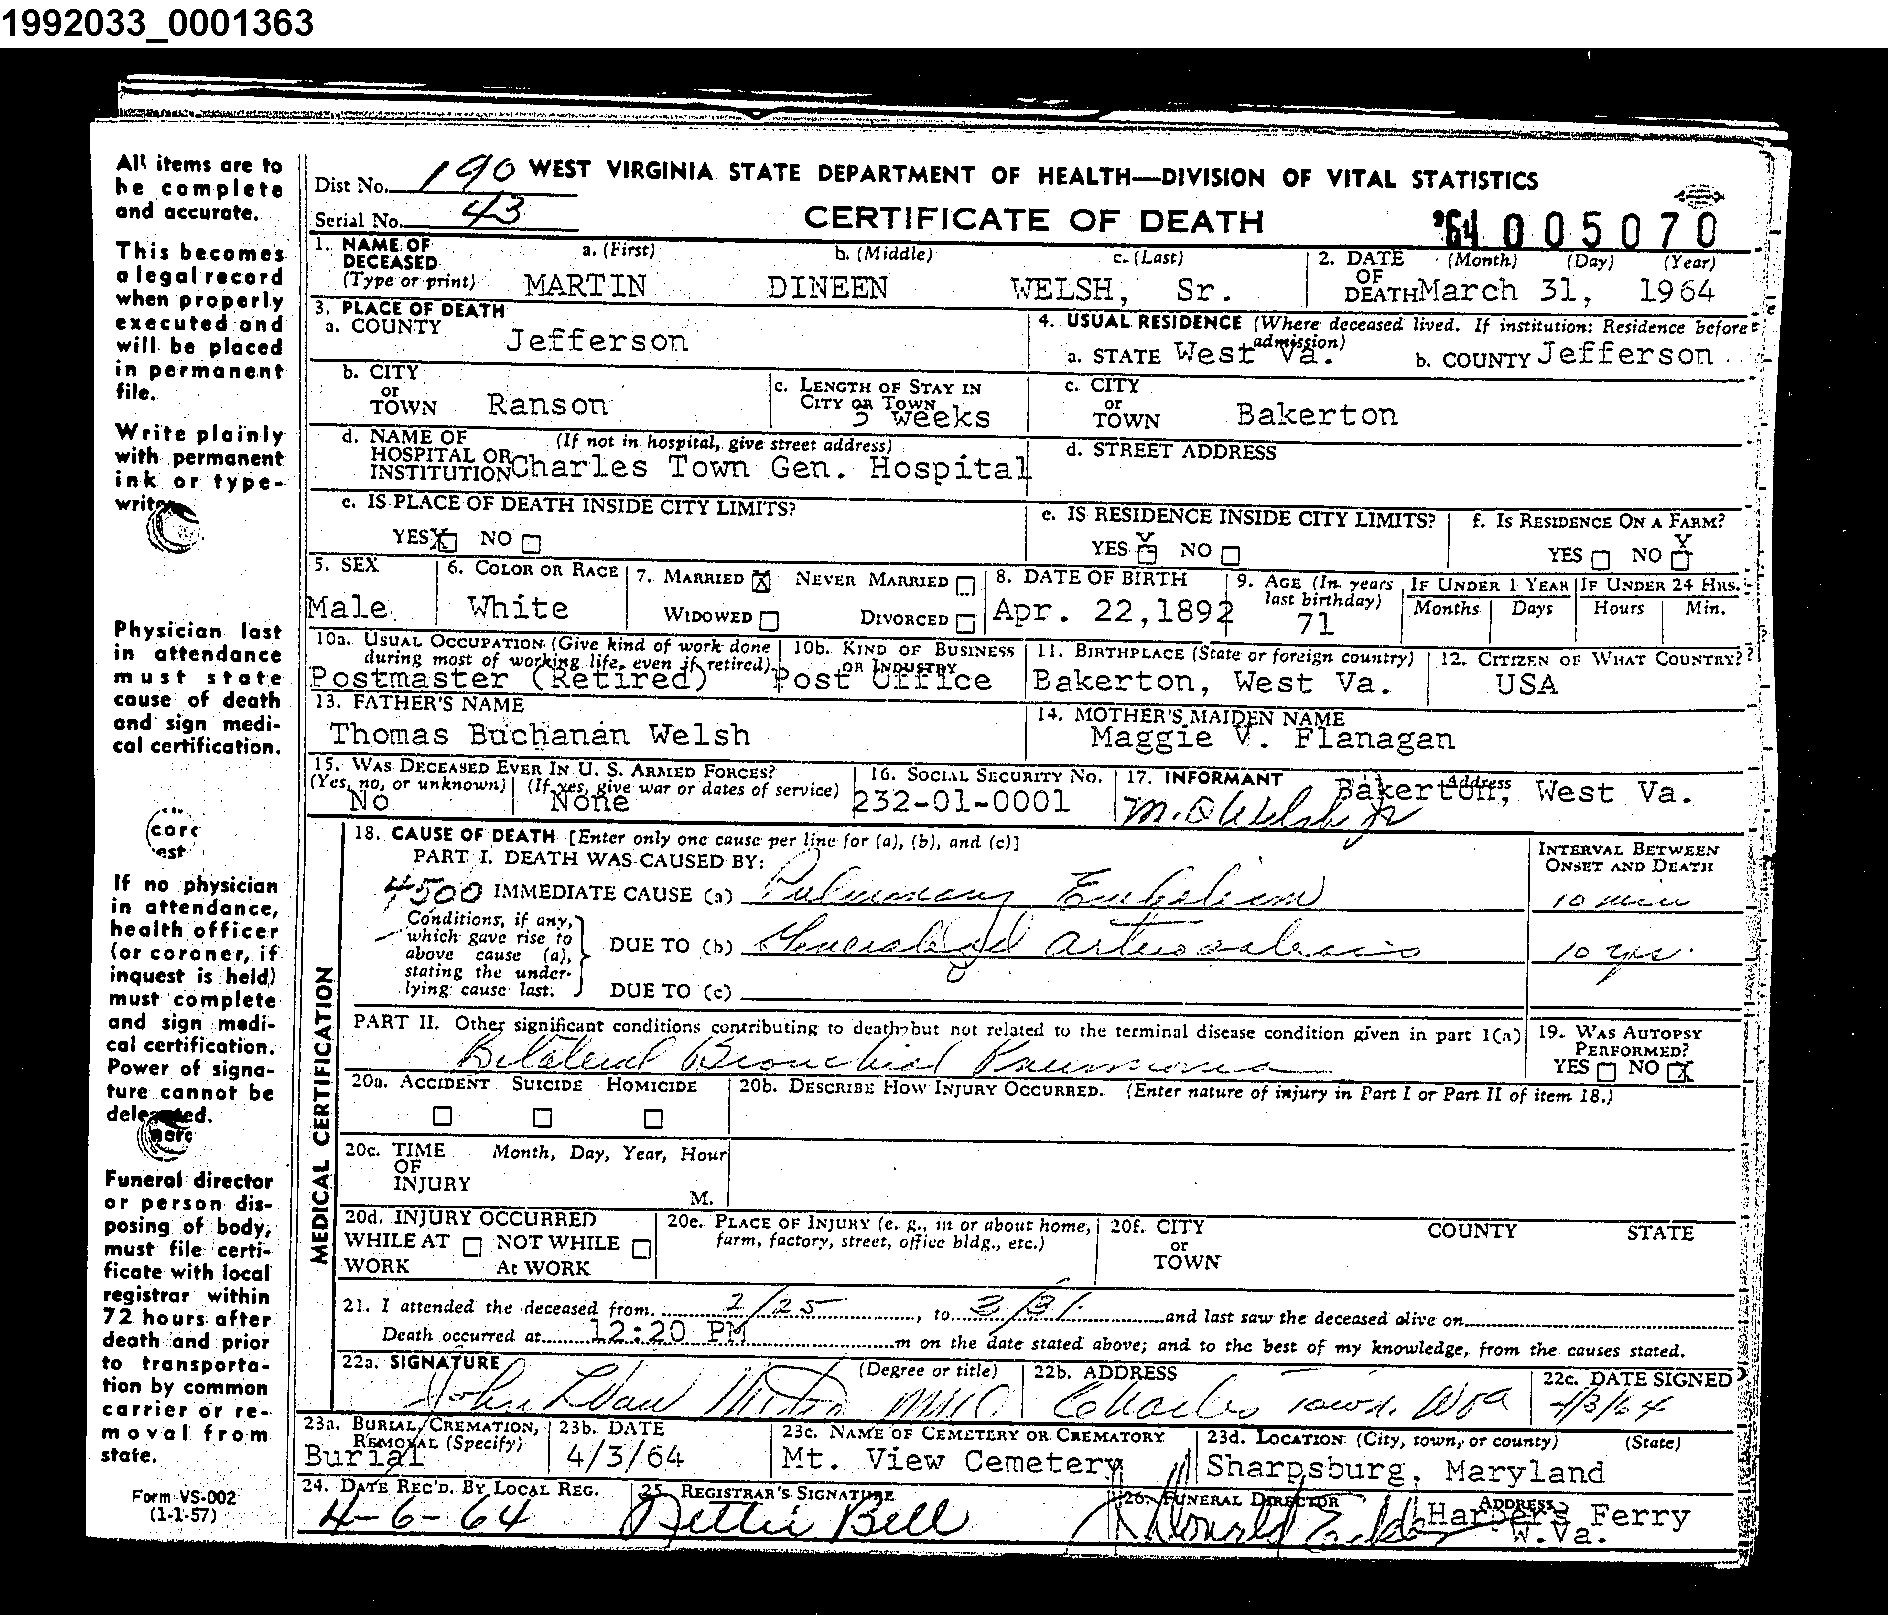 1992033_0001363
All items are to
be complete
and accurate.
This becomes
a legal record
when properly
executed and
will be placed
in permanent
file.
Write plainly
with permanent
ink or type-
writer
Physician last
in attendance
must state
cause of death
and sign medi-
cal certification.
If no physician
in attendance,
health officer
(or coroner, if
inquest is held)
must complete
and sign medi-
cal certification.
Power of signa-
ture cannot be
delegated.
Funeral director
or person dis-
posing of body,
must file certi-
ficate with local
registrar within
72 hours after
death and prior
to transporta-
tion by common
carrier or re-
moval from
state.
Form VS-002
(1-1-57)
Dist No. 190 WEST VIRGINIA STATE DEPARTMENT OF HEALTH—DIVISION OF VITAL STATISTICS
Serial No. 43 CERTIFICATE OF DEATH '64 005070
1. NAME OF DECEASED (Type or print) a. (First) b. (Middle) c. (Last) 2. DATE OF DEATH (Month) (Day) (Year)
MARTIN DINEEN WELSH, Sr. March 31, 1964
3. PLACE OF DEATH
a. COUNTY Jefferson
4. USUAL RESIDENCE (Where deceased lived. If institution: Residence before admission)
a. STATE West Va. b. COUNTY Jefferson
b. CITY or TOWN Ranson c. LENGTH OF STAY IN CITY OR TOWN 5 weeks
c. CITY or TOWN Bakerton
d. NAME OF HOSPITAL OR INSTITUTION (If not in hospital, give street address) Charles Town Gen. Hospital
d. STREET ADDRESS
e. IS PLACE OF DEATH INSIDE CITY LIMITS? YES X NO
e. IS RESIDENCE INSIDE CITY LIMITS? YES X NO
f. IS RESIDENCE ON A FARM? YES NO X
5. SEX Male 6. COLOR OR RACE White 7. MARRIED X NEVER MARRIED WIDOWED DIVORCED
8. DATE OF BIRTH Apr. 22,1892 9. AGE (In years last birthday) 71 IF UNDER 1 YEAR Months Days IF UNDER 24 HRS. Hours Min.
10a. USUAL OCCUPATION (Give kind of work done during most of working life, even if retired) Postmaster (Retired)
10b. KIND OF BUSINESS OR INDUSTRY Post Office
11. BIRTHPLACE (State or foreign country) Bakerton, West Va.
12. CITIZEN OF WHAT COUNTRY? USA
13. FATHER'S NAME Thomas Buchanan Welsh
14. MOTHER'S MAIDEN NAME Maggie V. Flanagan
15. WAS DECEASED EVER IN U. S. ARMED FORCES? (Yes, no, or unknown) (If yes, give war or dates of service) No None
16. SOCIAL SECURITY NO. 232-01-0001
17. INFORMANT M. D Welsh Jr Address Bakerton, West Va.
MEDICAL CERTIFICATION
18. CAUSE OF DEATH [Enter only one cause per line for (a), (b), and (c)]
PART I. DEATH WAS CAUSED BY: INTERVAL BETWEEN ONSET AND DEATH
4500 IMMEDIATE CAUSE (a) Pulmonary Embolism 10 min
Conditions, if any, which gave rise to above cause (a), stating the underlying cause last.
DUE TO (b) Generalized arteriosclerosis 10 yrs.
DUE TO (c)
PART II. Other significant conditions contributing to death but not related to the terminal disease condition given in part I(a)
Bilateral Bronchial Pneumonia
19. WAS AUTOPSY PERFORMED? YES NO X
20a. ACCIDENT SUICIDE HOMICIDE
20b. DESCRIBE HOW INJURY OCCURRED. (Enter nature of injury in Part I or Part II of item 18.)
20c. TIME OF INJURY Month, Day, Year, Hour M.
20d. INJURY OCCURRED WHILE AT WORK NOT WHILE At WORK
20e. PLACE OF INJURY (e. g., in or about home, farm, factory, street, office bldg., etc.)
20f. CITY or TOWN COUNTY STATE
21. I attended the deceased from 2/25, to 3/31. and last saw the deceased alive on
Death occurred at 12:20 PM m on the date stated above; and to the best of my knowledge, from the causes stated.
22a. SIGNATURE John (Degree or title) MD
22b. ADDRESS Charles Town, W Va
22c. DATE SIGNED 4/3/64
23a. BURIAL, CREMATION, REMOVAL (Specify) Burial
23b. DATE 4/3/64
23c. NAME OF CEMETERY OR CREMATORY Mt. View Cemetery
23d. LOCATION (City, town, or county) (State) Sharpsburg, Maryland
24. DATE REC'D. BY LOCAL REG. 4-6-64
25. REGISTRAR'S SIGNATURE Nettie Bell
26. FUNERAL DIRECTOR Donald ADDRESS Harpers Ferry W.Va.